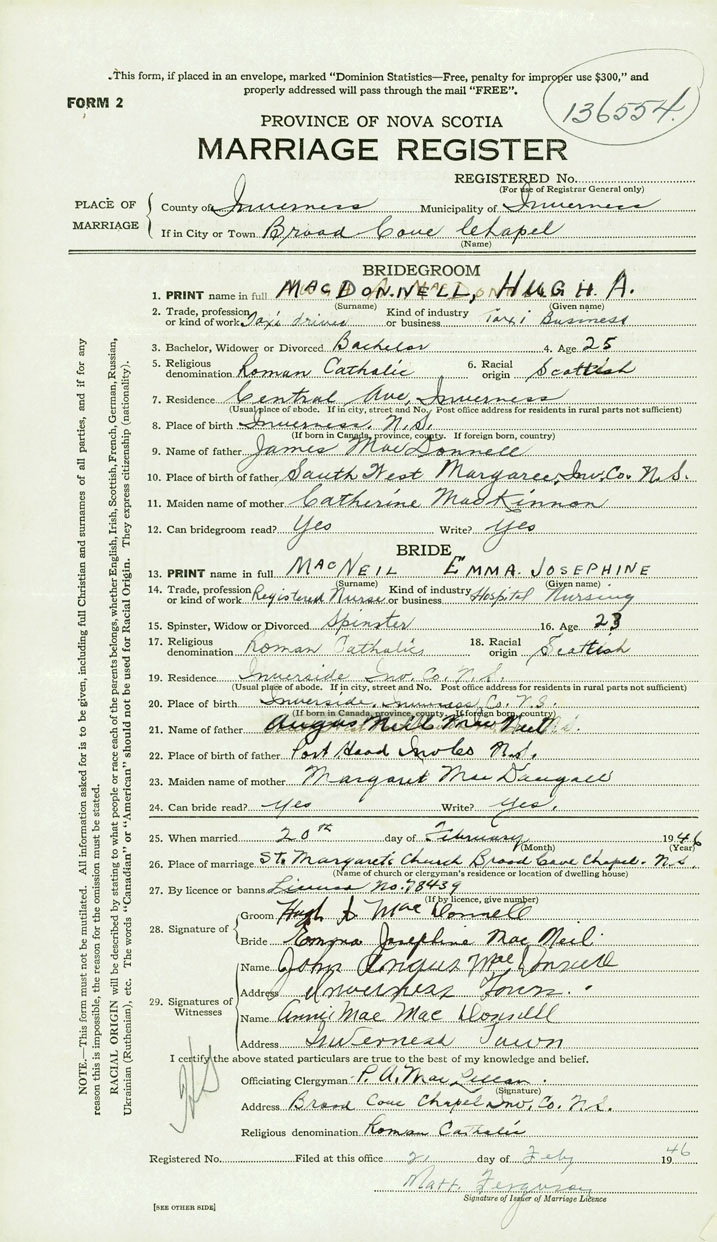 .This form, if placed in an envelope, marked "Dominion Statistics—Free, penalty for improper use $300," and
properly addressed will pass through the mail "FREE".
FORM 2
136554
PROVINCE OF NOVA SCOTIA
MARRIAGE REGISTER
REGISTERED No.
(For use of Registrar General only)
PLACE OF MARRIAGE
County of Inverness Municipality of Inverness
If in City or Town Broad Cove Chapel
(Name)
BRIDEGROOM
1. PRINT name in full MACDONNELL, HUGH A.
(Surname) (Given name)
2. Trade, profession or kind of work Taxi driver Kind of industry or business Taxi Business
3. Bachelor, Widower or Divorced Bachelor 4. Age 25
5. Religious denomination Roman Catholic 6. Racial origin Scottish
7. Residence Central Ave, Inverness
(Usual place of abode. If in city, street and No. Post office address for residents in rural parts not sufficient)
8. Place of birth Inverness. N.S.
(If born in Canada, province, county. If foreign born, country)
9. Name of father James MacDonnell
10. Place of birth of father South West Margaree, Inv. Co. N.S.
11. Maiden name of mother Catherine MacKinnon
12. Can bridegroom read? Yes Write? Yes
BRIDE
13. PRINT name in full MACNEIL EMMA JOSEPHINE
(Surname) (Given name)
14. Trade, profession or kind of work Registered Nurse Kind of industry or business Hospital Nursing
15. Spinster, Widow or Divorced Spinster 16. Age 23
17. Religious denomination Roman Catholic 18. Racial origin Scottish
19. Residence Inverside Inv. Co. N.S.
(Usual place of abode. If in city, street and No. Post office address for residents in rural parts not sufficient)
20. Place of birth Inverside, Inverness Co. N.S.
(If born in Canada, province, county. If foreign born, country)
21. Name of father Angus Neill MacNeil
22. Place of birth of father Port Hood Inv Co N.S.
23. Maiden name of mother Margaret MacDougall
24. Can bride read? Yes Write? Yes.
25. When married 20th day of February 1946
(Month) (Year)
26. Place of marriage St. Margaret's Church Broad Cove Chapel. N.S.
(Name of church or clergyman's residence or location of dwelling house)
27. By licence or banns License No. 78439
(If by licence, give number)
28. Signature of
Groom Hugh A MacDonnell
Bride Emma Josephine MacNeil
29. Signatures of Witnesses
Name John Angus MacDonnell
Address Inverness Town.
Name Annie Mae MacDonnell
Address Inverness Town
I certify the above stated particulars are true to the best of my knowledge and belief.
Officiating Clergyman P. A. MacLellan.
(Signature)
Address Broad Cove Chapel Inv. Co. N.S.
Religious denomination Roman Catholic
Registered No. Filed at this office 21 day of Feby 1946
Matt. Ferguson
Signature of Issuer of Marriage Licence
[SEE OTHER SIDE]
NOTE.—This form must not be mutilated. All information asked for is to be given, including full Christian and surnames of all parties, and if for any
reason this is impossible, the reason for the omission must be stated.
RACIAL ORIGIN will be described by stating to what people or race each of the parents belongs, whether English, Irish, Scottish, French, German, Russian,
Ukrainian (Ruthenian), etc. The words "Canadian" or "American" should not be used for Racial Origin. They express citizenship (nationality).